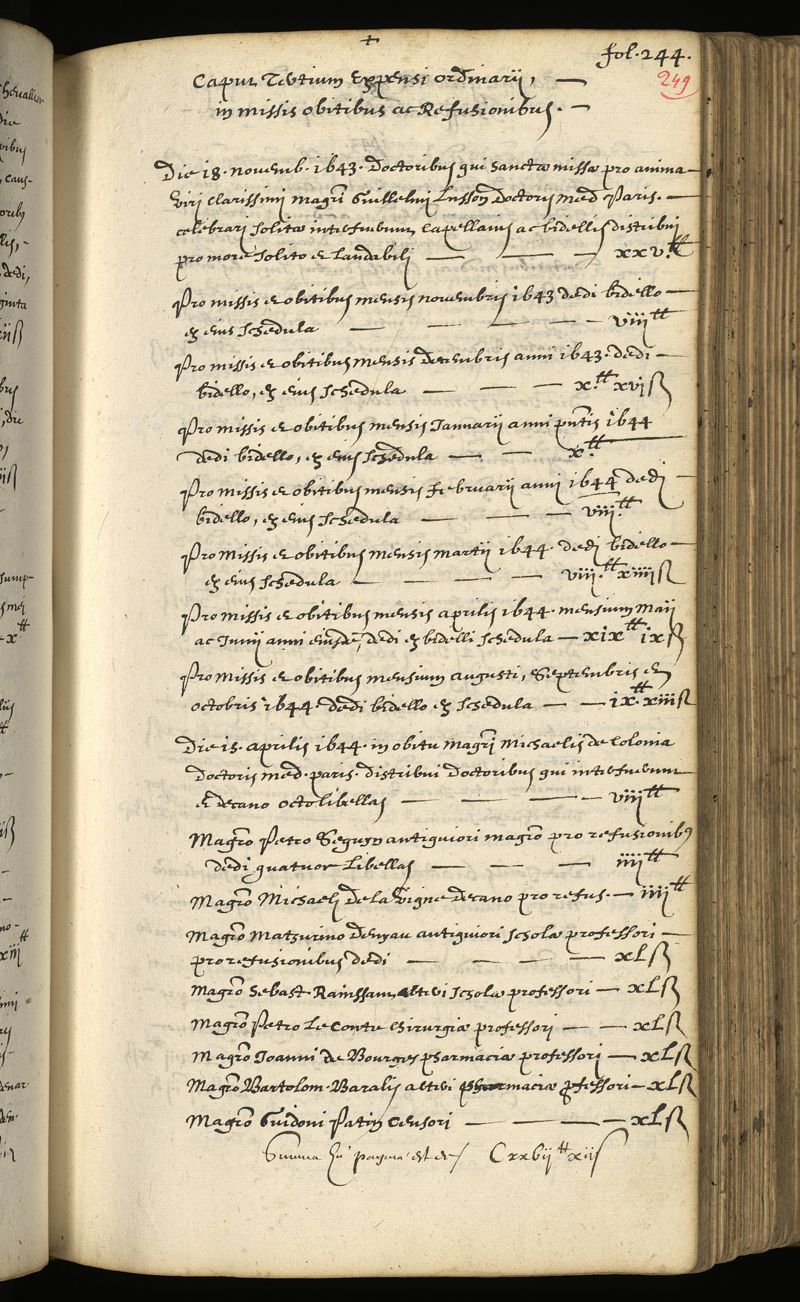 +
fol. 244.
249
Caput Tertium Expensi ordinarii, —
in missis obitibus ac Refusionibus. —
Die 18. novemb. 1643. Doctoribus qui sanctæ missæ pro anima —
viri clarissimi magri Guillelmi Lusson Doctoris med Paris. —
celebrari solitæ interfuerunt, capellanis ac bidellis distribui
pro more solito et laudabili — — — xxv.tt
Pro missis et obitibus mensis novembris 1643 dedi bidello —
ex eius schedula — — — — — viii tt
Pro missis et obitibus mensis decembris anni 1643. dedi —
bidello, ex eius schedula — — — x.tt xvi ß
Pro missis et obitibus mensis Januarii anni pntis 1644
dedi bidello, ex eius schedula — — x.tt
Pro missis et obitibus mensis februarii anni 1644 dedi —
bidello, ex eius schedula — — — viii.tt
Pro missis et obitibus mensis martii 1644. dedi bidello —
ex eius schedula — — — — viii.tt xiiii ß
Pro missis et obitibus mensis aprilis 1644. mensium Maii
ac Junii anni eiusde, dedi ex bidelli schedula — xix tt ix ß
Pro missis et obitibus mensium augusti, septembris et
octobris 1644. dedi bidello ex schedula — — ix.tt xiii ß
Die 15. aprilis 1644. in obitu magri Michaelis de Colonia
Doctoris med. paris. distribui Doctoribus qui interfuerunt —
et decano octo libellas — — — — viii tt
Magro Petro Seguyn antiquiori magro pro refusionib9
dedi quatuor Libellas — — — iiii tt
Magro Michaeli de la Vigne decano pro refus. — iiii tt
Magro Mathurino Denyau antiquiori scholæ professori —
pro refusionibus dedi — — — — xL ß
Magro Sebast. Rainssant alteri scholæ professori — xL ß
Magro Petro Le Conte chirurgiæ professori — — xL ß
Magro Joanni de Bourges pharmaciæ professori — xL ß
Magro Bartolom. Baralis alteri pharmaciæ pfessori — xL ß
Magro Guidoni Patin Censori — — — xL ß
Summa hui pagina est de / Cxxvii tt xii s